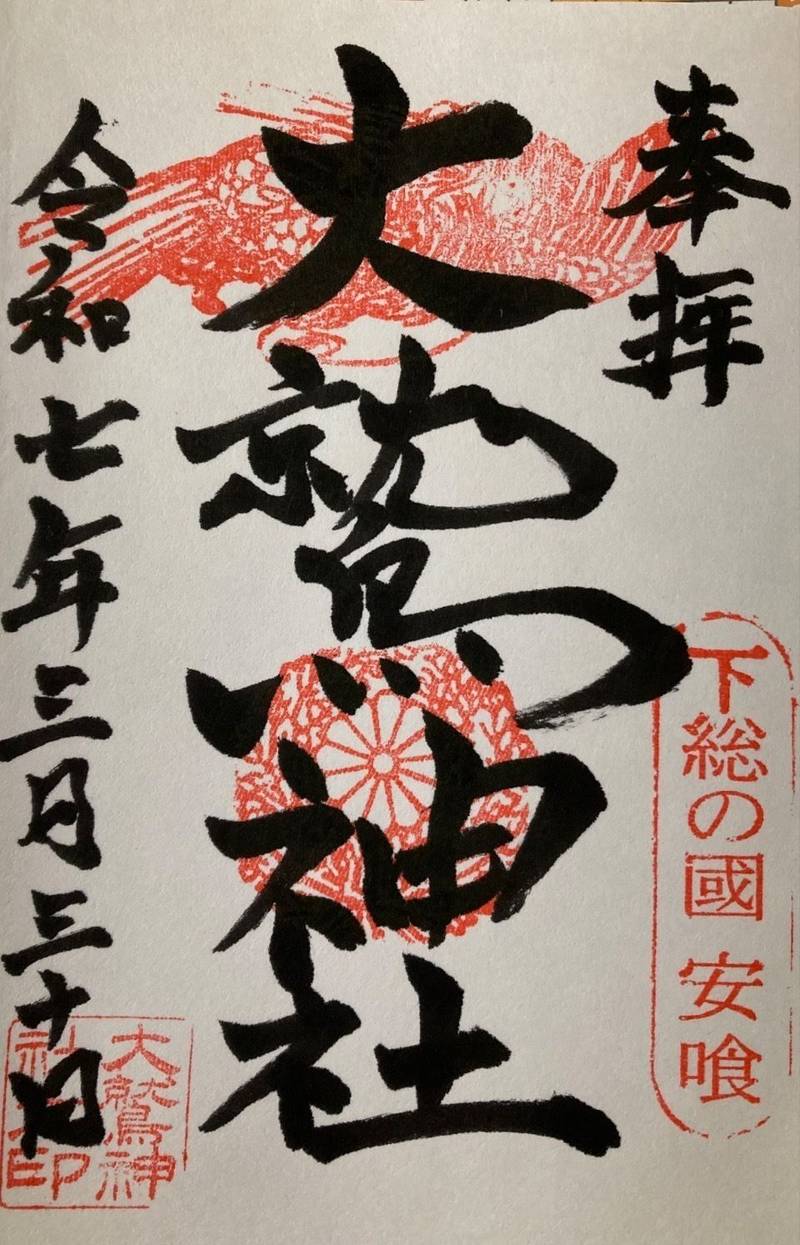 奉拝
下総の國 安喰
大鷲神社
令和七年三月三十日
大鷲神
社 印